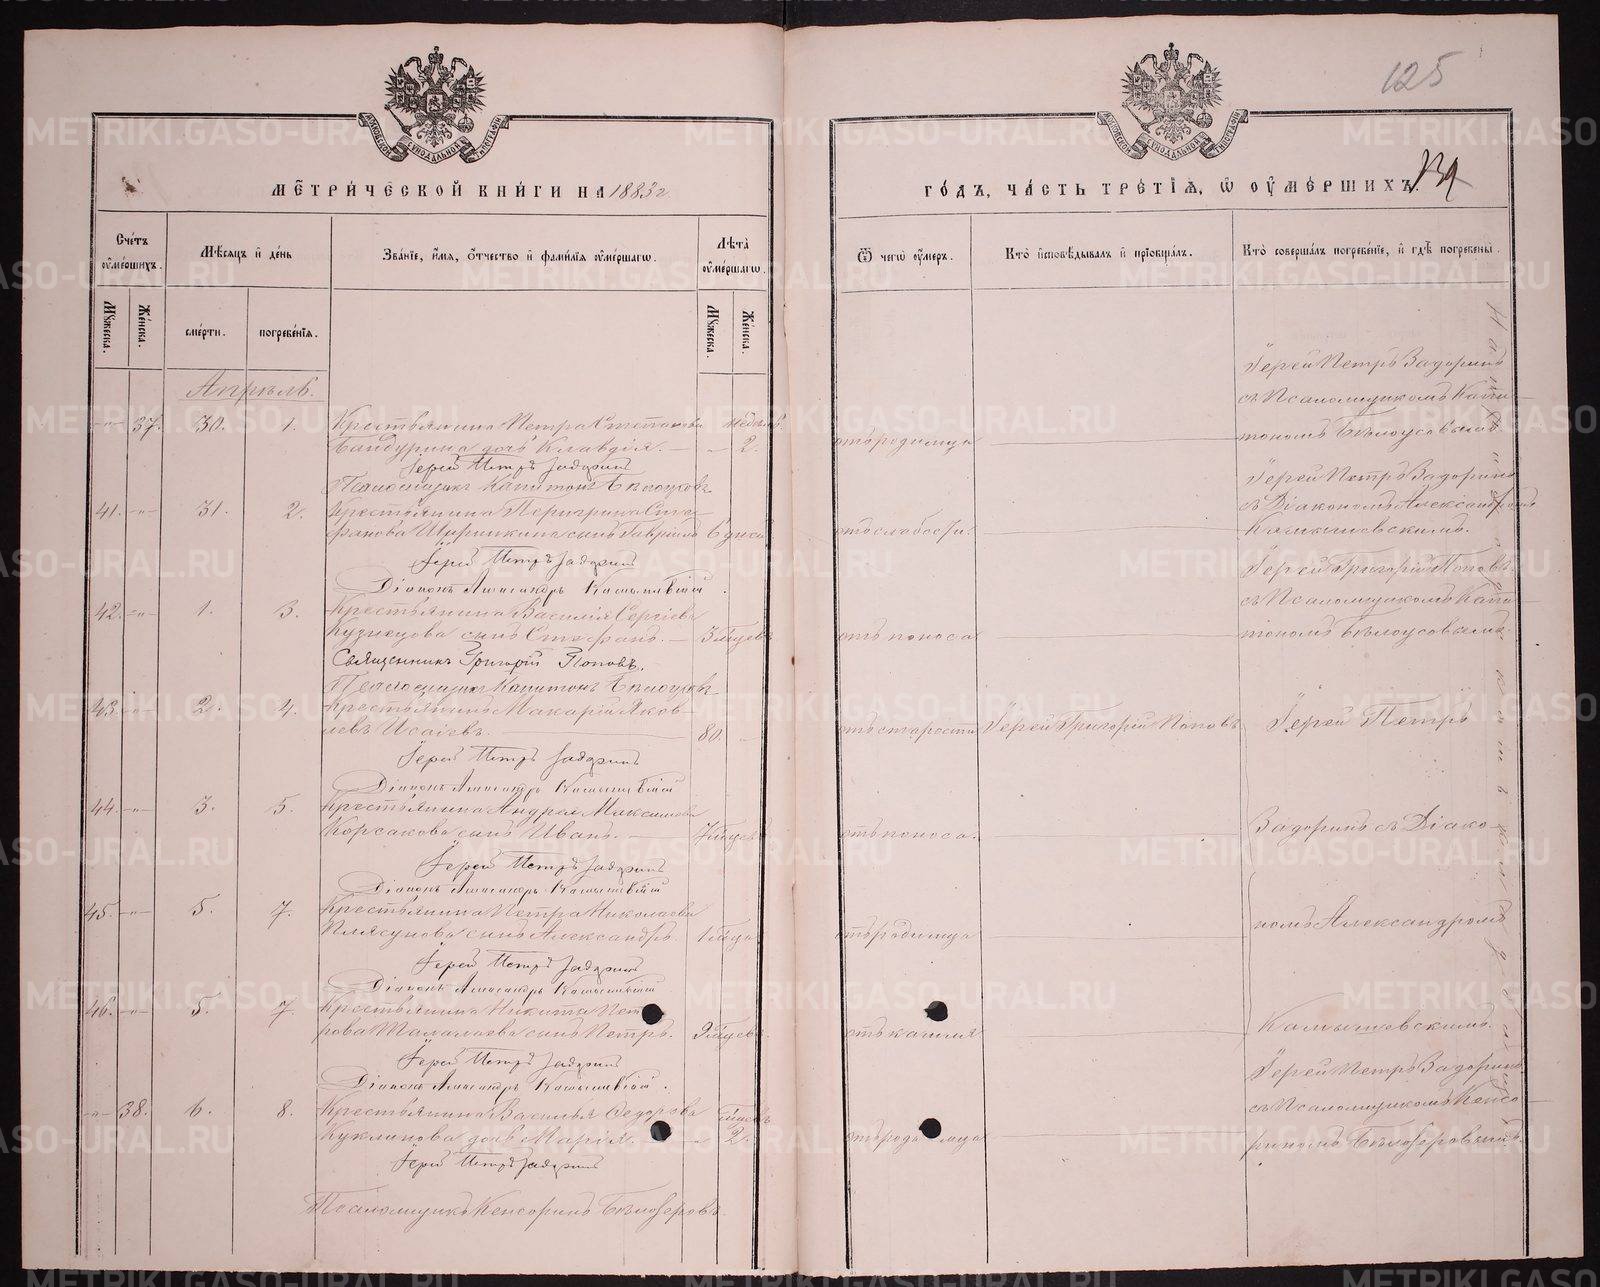 125
МЕТРИЧЕСКОЙ КНИГИ НА 1883 г.
ГОДЪ, ЧАСТЬ ТРЕТІЯ, Ѿ ОУМЕРШИХЪ.
Счетъ оумершихъ.
Мѣсяцъ и день
Званіе, имя, отчество и фамилія оумершагѡ.
Лѣта оумершагѡ.
Ѿ чегѡ оумеръ.
Кто исповѣдывалъ и пріобщалъ.
Кто совершалъ погребеніе, и гдѣ погребены.
Мужеска.
Женска.
смерти.
погребенія.
Мужеска.
Женска.
Апрѣль.
37. 30. 1. Крестьянина Петра Степанова недѣль
Бандурина дочь Клавдія. 2.
отъ родимца
Іерей Петръ Задоринъ
съ Псаломщикомъ Капи
тономъ Бѣлоусовымъ.
Іерей Петръ Задоринъ
Псаломщикъ Капитонъ Бѣлоусовъ
41. 31. 2. Крестьянина Перигрина Сте
фанова Ширинкина сынъ Гавріилъ 6 дней
отъ слабости.
Іерей Петръ Задоринъ
съ Діакономъ Александромъ
Камышевскимъ.
Іерей Петръ Задоринъ
Діаконъ Александръ Камышевскій
42. 1. 3. Крестьянина Василія Сергіева
Кузнецова сынъ Стефанъ. 3 мѣсяцевъ
отъ поноса
Іерей Григорій Поповъ
съ Псаломщикомъ Капи
тономъ Бѣлоусовымъ.
Священникъ Григорій Поповъ.
Псаломщикъ Капитонъ Бѣлоусовъ
43. 2. 4. Крестьянинъ Макарій Яков
левъ Исаіевъ. 80.
отъ старости
Іерей Григорій Поповъ
Іерей Петръ
Іерей Петръ Задоринъ
Діаконъ Александръ Камышевскій
44. 3. 5. Крестьянина Андрея Максимова
Корсакова сынъ Иванъ.
отъ поноса.
Задоринъ съ Діако
Іерей Петръ Задоринъ
Діаконъ Александръ Камышевскій
45. 5. 7. Крестьянина Петра Николаева
Плясунова сынъ Александръ.
отъ родимца
номъ Александромъ
Іерей Петръ Задоринъ
Діаконъ Александръ Камышевскій
46. 5. 7. Крестьянина Никита Пет
рова Талалаева сынъ Петръ.
отъ кашля
Камышевскимъ.
Іерей Петръ Задоринъ
Діаконъ Александръ Камышевскій.
38. 6. 8. Крестьянина Василья Ѳедорова
Куклинова дочь Марія. 2.
отъ родимца
Іерей Петръ Задоринъ
съ Псаломщикомъ Кенсо
риномъ Бѣлозеровымъ.
Іерей Петръ Задоринъ
Псаломщикъ Кенсоринъ Бѣлозеровъ.
METRIKI.GASO-URAL.RU